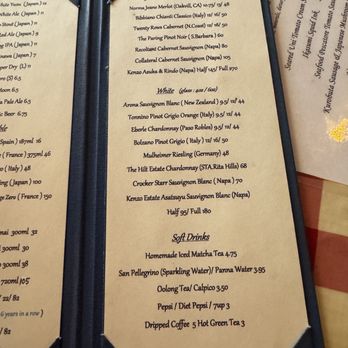 White Yuzu ( Japan ) 12
Ale ( Japan ) 12
t Ale ( Japan )
g IPA ( Japan )
w ( Japan ) 12
per Dry (L) 11
(S) 6.5
oon 6.5
a Pale Ale 6.5
ic Beer 6.75
Spain ) 187ml 16
( France ) 375ml 46
( Italy ) 48
ling ( Japan ) 100
ge Zero ( France ) 150
300ml 30
300ml 38
720ml 105
/ 22/ 82
6 years in a row )
/ 82
Norma Jeane Merlot (Oakvill, CA) 11.75/ 17/ 48
Bibbiano Chianti Classico (Italy) 11/ 16/ 50
Twenty Rows Cabernet (N.Coast) 11/ 16/ 50
The Paring Pinot Noir ( S.Barbara ) 60
Raccoltant Cabernet Sauvignon (Napa) 80
Collateral Cabernet Sauvignon (Napa) 105
Kenzo Asuka & Rindo (Napa) Half 145/ Full 170
White (glass : 4oz / 6oz)
Aroma Sauvignon Blanc ( New Zealand ) 9.5/ 12/ 44
Torresino Pinot Grigio Orange (Italy) 9.5/ 12/ 44
Eberle Chardonnay (Paso Robles) 9.5/ 13/ 48
Bolzano Pinot Grigio ( Italy) 11/ 16/ 50
Malheimer Riesling (Germany) 48
The Hilt Estate Chardonnay (STA.Rita Hills) 68
Crocker Starr Sauvignon Blanc ( Napa ) 70
Kenzo Estate Asatsuyu Sauvignon Blanc (Napa)
Half 95/ Full 180
Soft Drinks
Homemade Iced Matcha Tea 4.75
San Pellegrino (Sparkling Water)/ Panna Water 3.95
Oolong Tea/ Calpico 3.50
Pepsi / Diet Pepsi / 7up 3
Dripped Coffee 5 Hot Green Tea 3
Seared Uni Tomato Cream
Ikasumi Squid Ink
Seafood Pescatore Tomato
Kurobuta Sausage & Japanese Mushroom